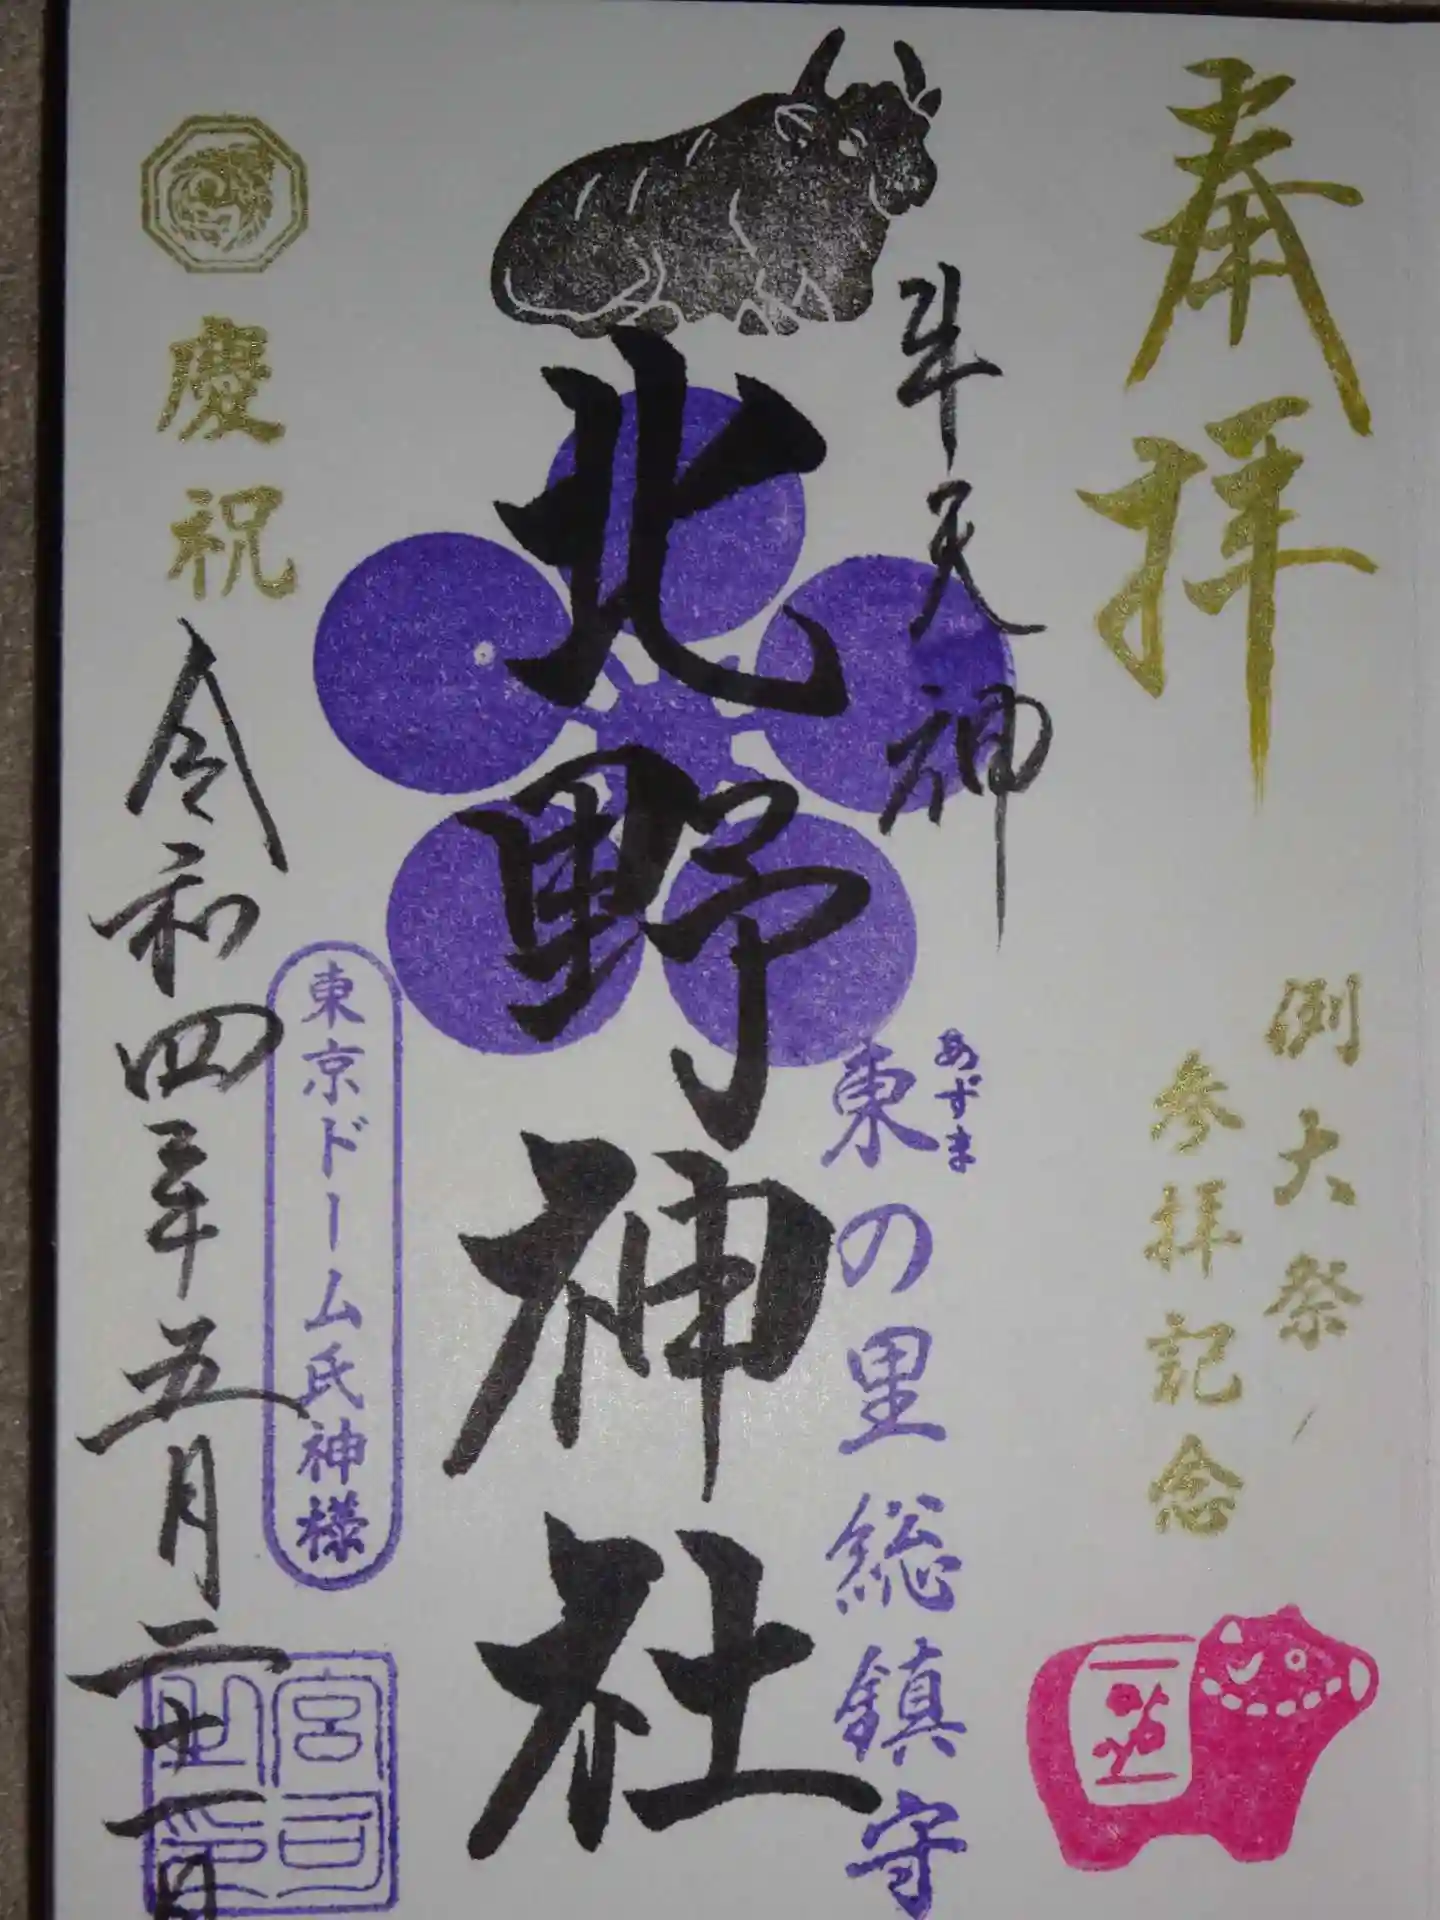 奉拝
例大祭
参拝記念
牛天神
北野神社
東の里総鎮守
あずま
東京ドーム氏神様
慶祝
令和四年五月二十一日
宮司之印